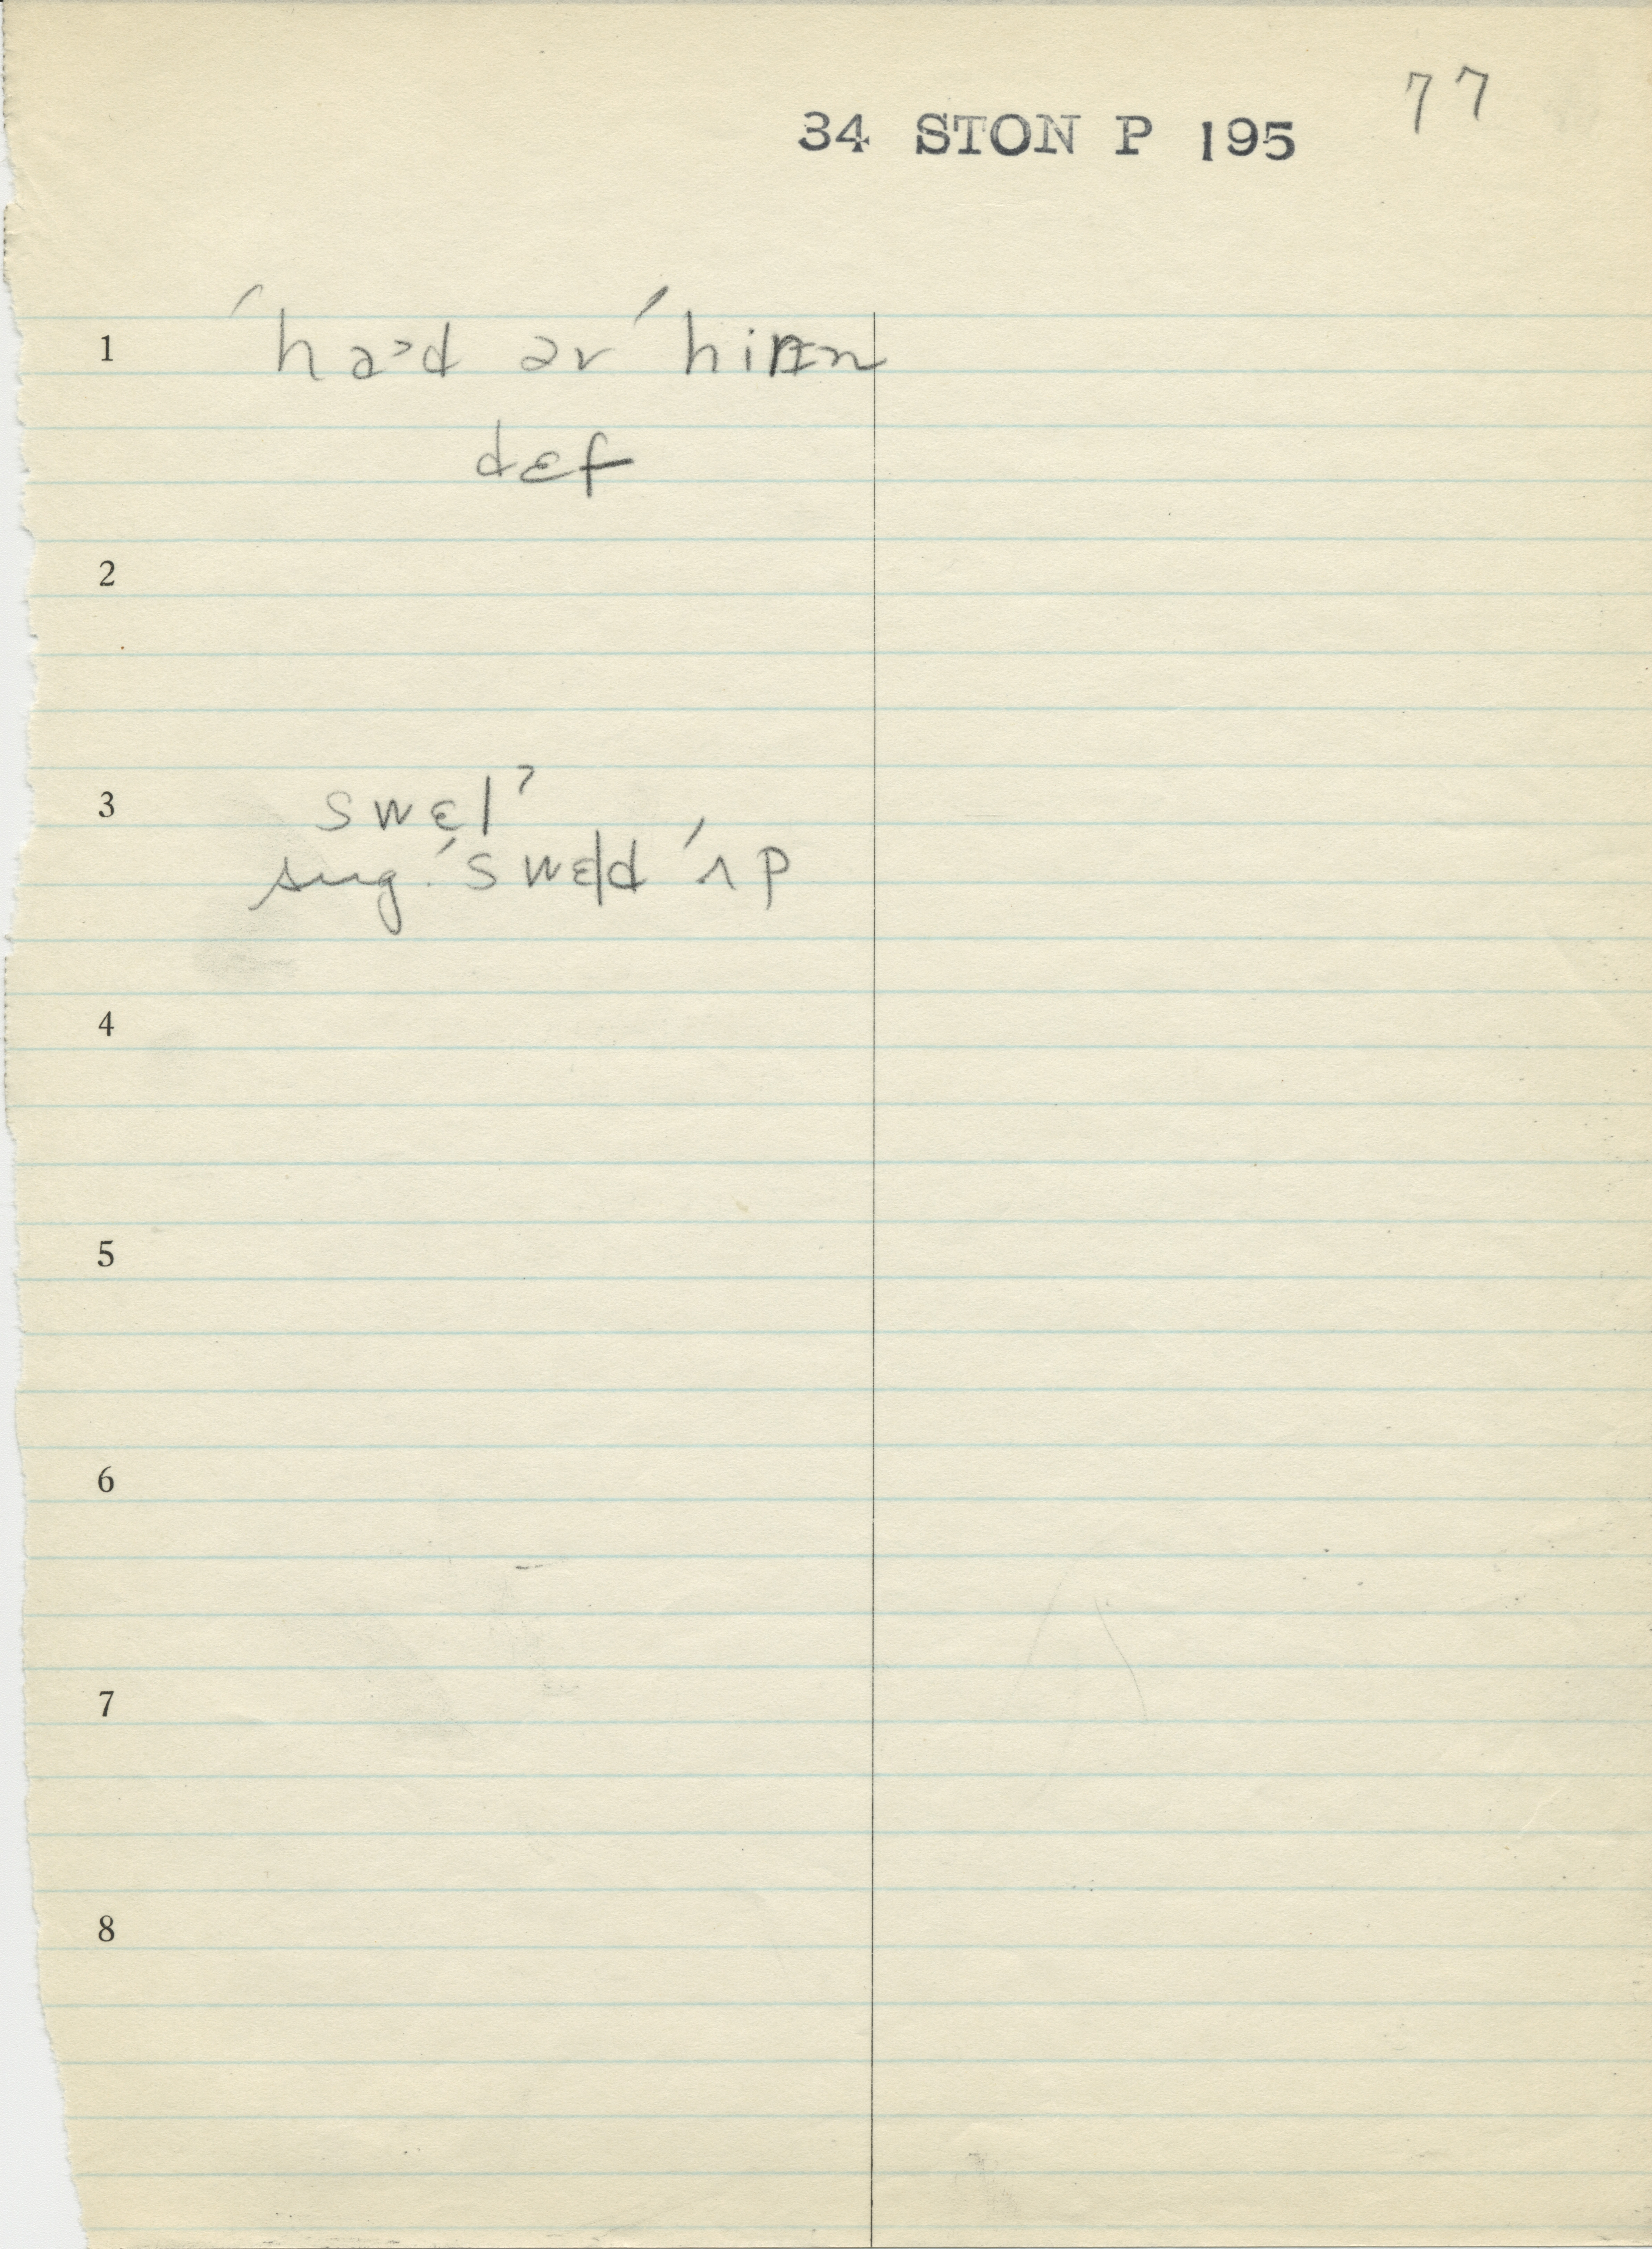 77
34 STON P 195
1 ˈhaɚd əv ˈhiɾɪn
dɛf
2
3 swɛl?
sug. ˈswɛld ˈʌp
4
5
6
7
8